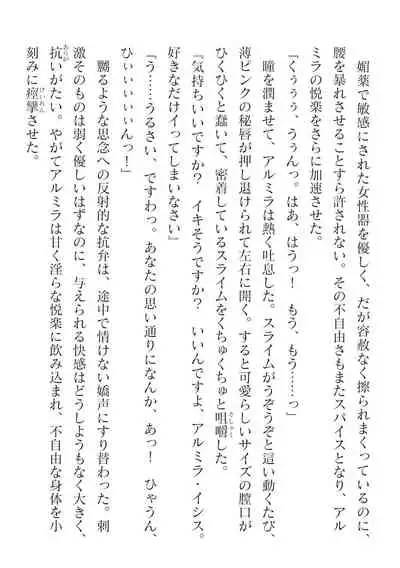 媚薬で敏感にされた女性器を優しく、だが容赦なく擦られまくっているのに、
腰を暴れさせることすら許されない。その不自由さもまたスパイスとなり、アル
ミラの悦楽をさらに加速させた。
「くぅぅぅ、うぅんっ。はあ、はうっ！　もう、もう……っ」
瞳を潤ませて、アルミラは熱く吐息した。スライムがうぞうぞと這い動くたび、
薄ピンクの秘唇が押し退けられて左右に開く。すると可愛らしいサイズの膣口が
ひくひくと蠢いて、密着しているスライムをくちゅくちゅと咀嚼した。
『気持ちいいですか？　イキそうですか？　いいんですよ、アルミラ・イシス。
好きなだけイってしまいなさい』
「う……うるさい、ですわっ。あなたの思い通りになんか、あっ！　ひゃうん、
ひぃぃぃぃぃんっ！」
嬲るような思念への反射的な抗弁は、途中で情けない嬌声にすり替わった。刺
激そのものは弱く優しいはずなのに、与えられる快感はどうしようもなく大きく、
抗いがたい。やがてアルミラは甘く淫らな悦楽に飲み込まれ、不自由な身体を小
刻みに痙攣させた。